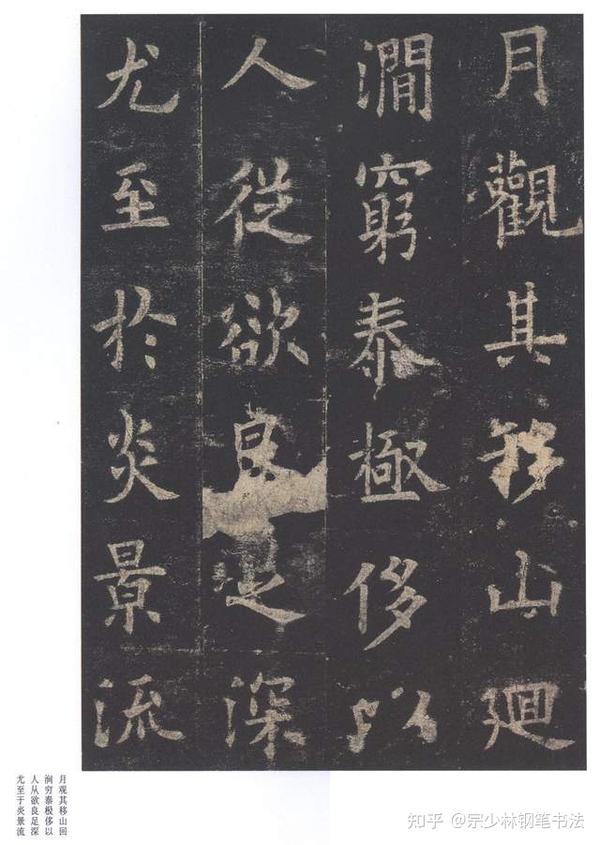 月觀其移山廻
澗窮泰極侈以
人從欲良足深
尤至於炎景流
月观其移山回
涧穷泰极侈以
人从欲良足深
尤至于炎景流
知乎 @宗少林钢笔书法